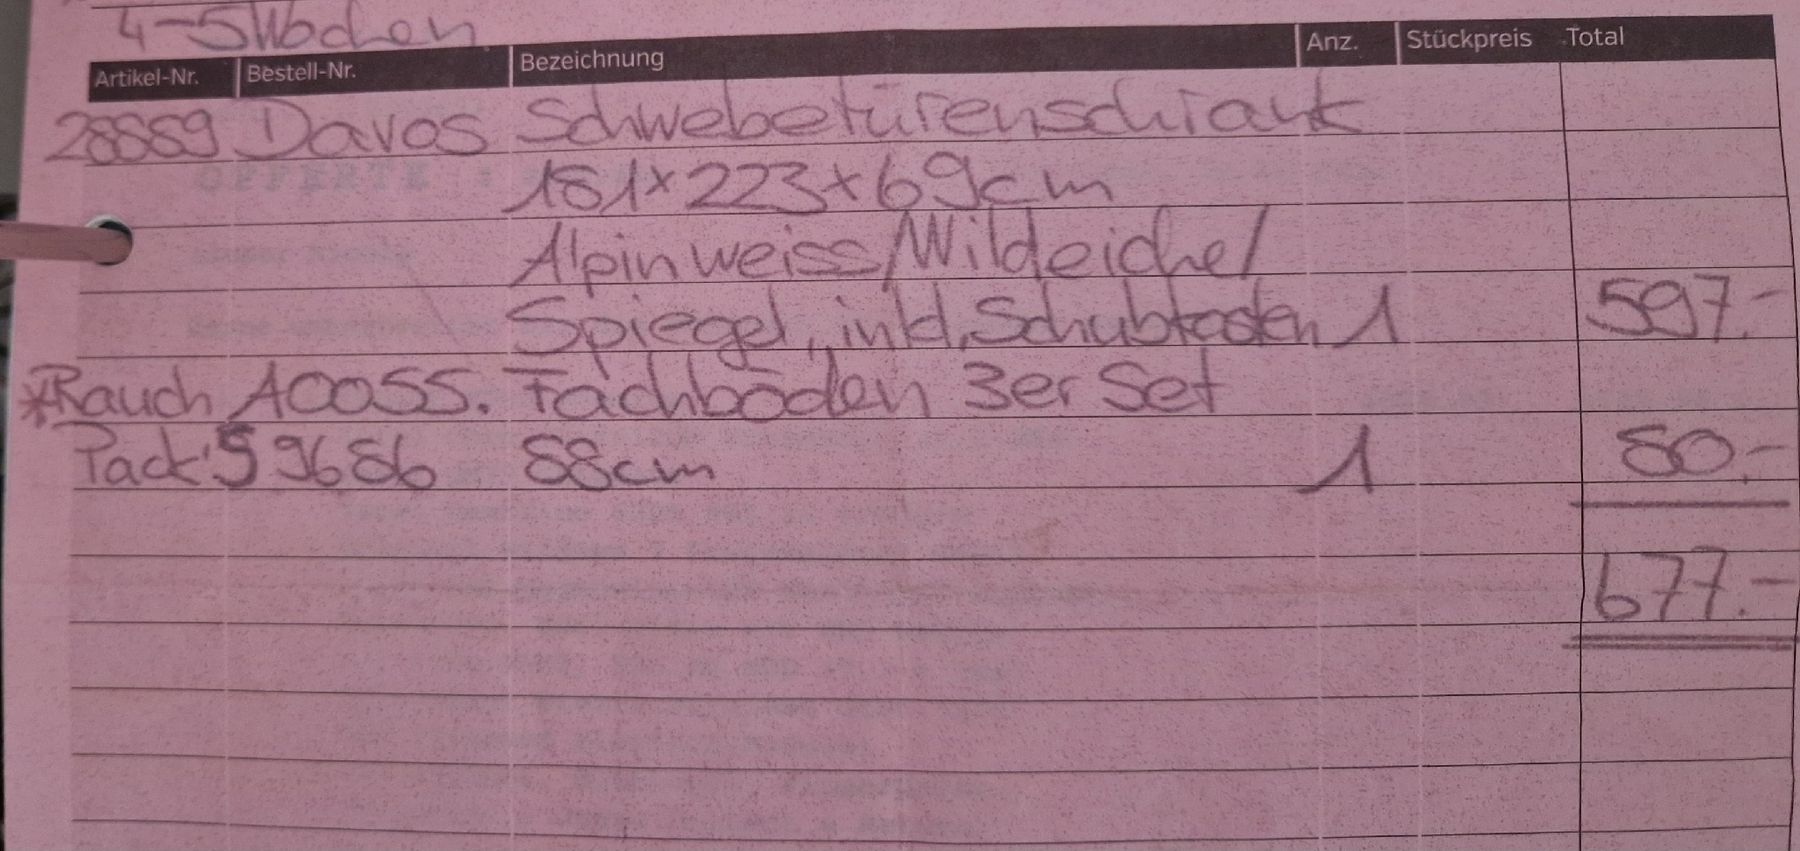 4-5 Wochen
Artikel-Nr. Bestell-Nr. Bezeichnung Anz. Stückpreis Total
28889 Davos Schwebetürenschrank
181x223x69cm
Alpinweiss/Wildeiche/
Spiegel, inkl. Schubkasten 1 597.-
*Rauch A0055. Fachböden 3er Set
Pack's 9686 88cm 1 80.-
677.-
OFFERTE :